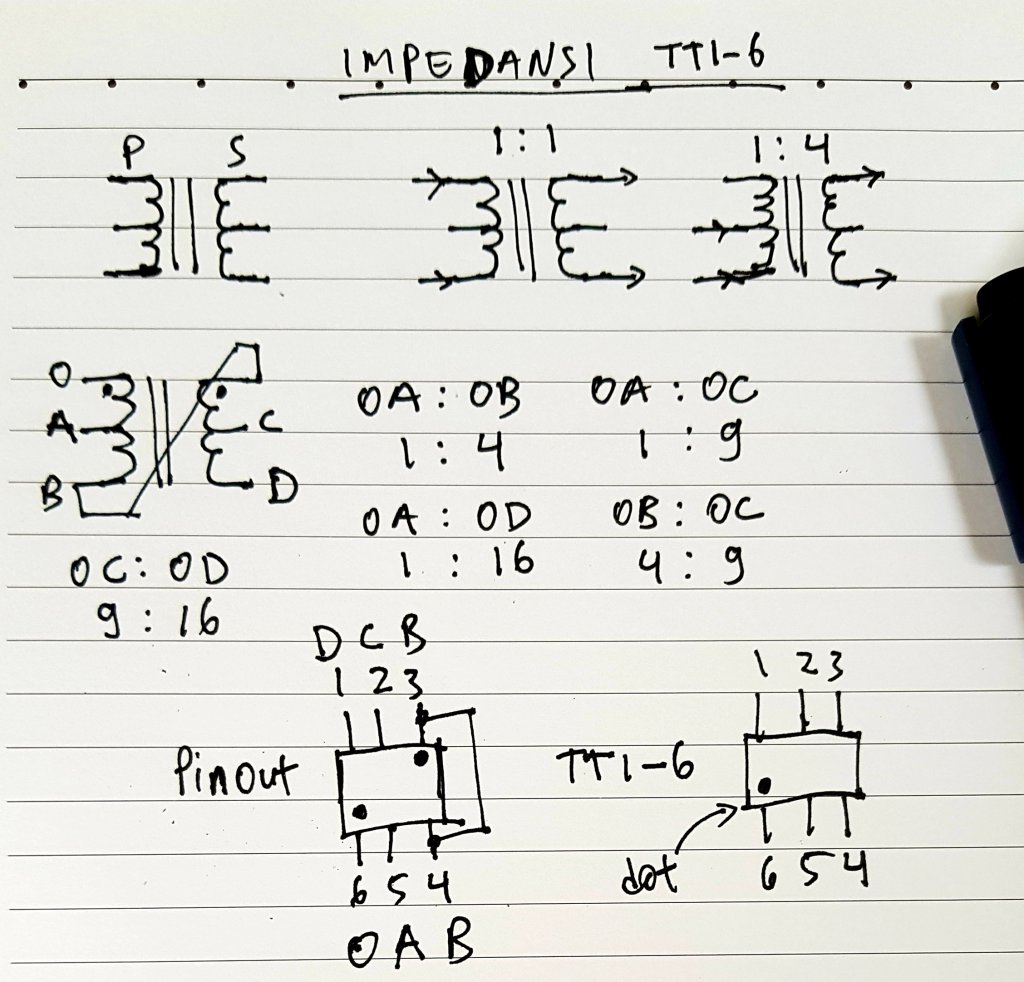 IMPEDANSI TT1-6
P S
1:1
1:4
O
A
B
C
D
OA : OB
1 : 4
OA : OC
1 : 9
OA : OD
1 : 16
OB : OC
4 : 9
OC : OD
9 : 16
D C B
1 2 3
Pinout
6 5 4
O A B
1 2 3
TT1-6
dot
6 5 4